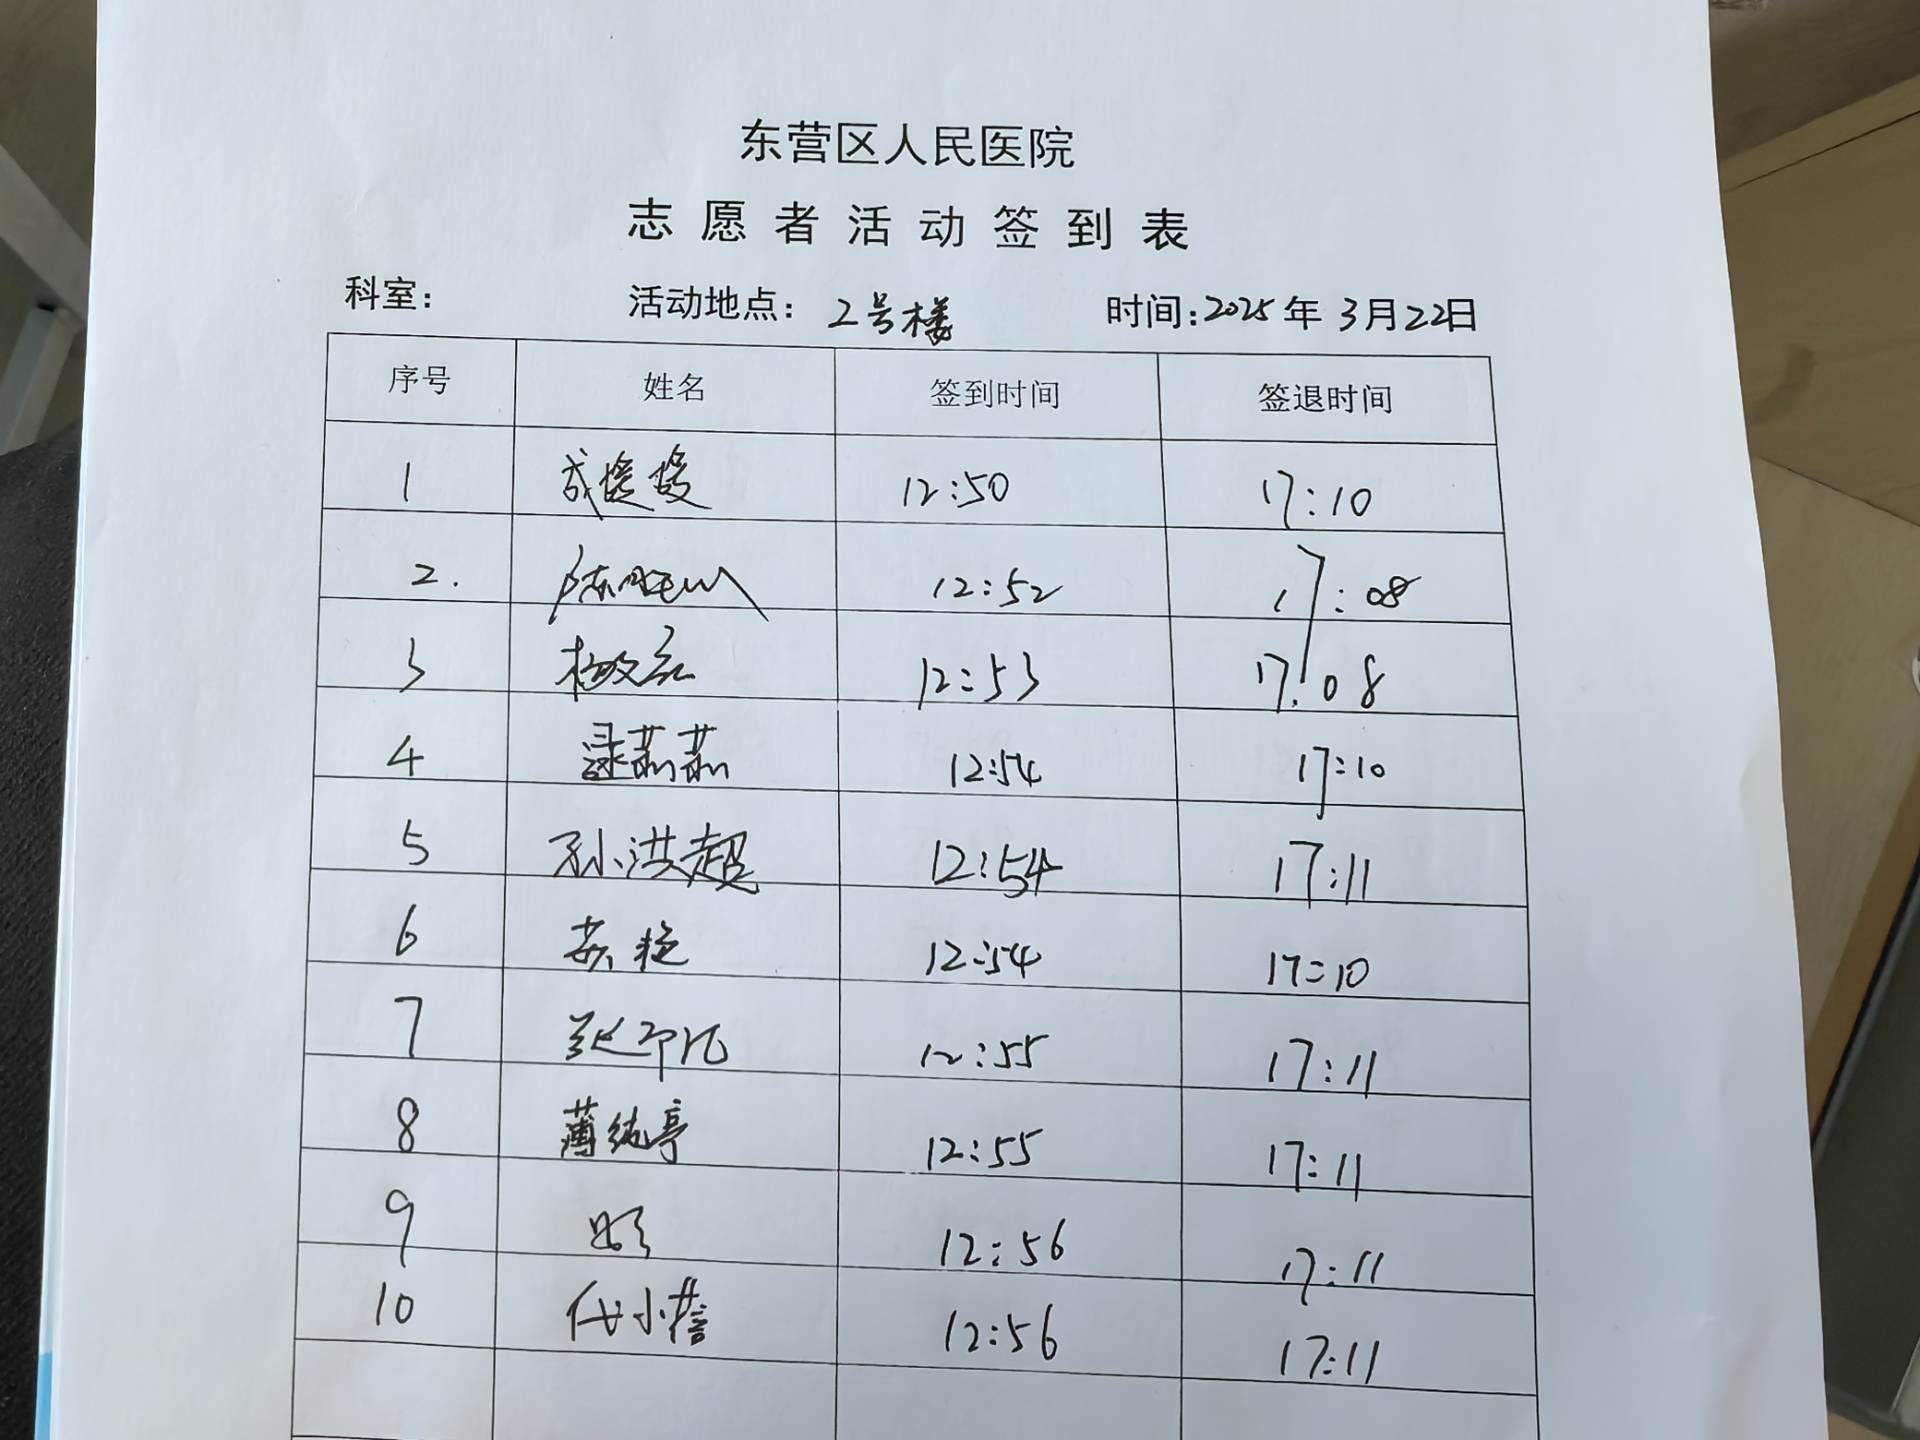 东营区人民医院
志愿者活动签到表
科室： 活动地点：2号楼 时间：2025年3月22日
序号 姓名 签到时间 签退时间
1 12:50 17:10
2. 12:52 17:08
3 12:53 17:08
4 12:54 17:10
5 孙洪超 12:54 17:11
6 12:54 17:10
7 12:55 17:11
8 薄纯亭 12:55 17:11
9 12:56 17:11
10 代小蓓 12:56 17:11